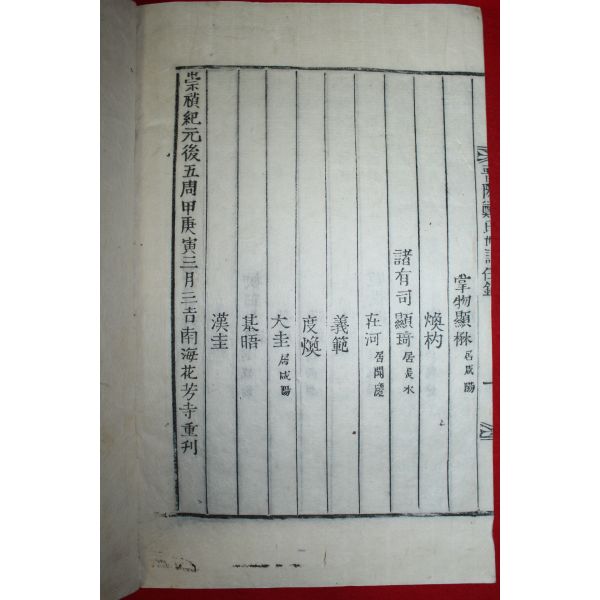 晋陽鄭氏世譜任錄
掌物顯 居咸陽
煥杓
諸有司顯琦 居長水
在河 居聞慶
義範
度煥
大圭 居咸陽
基晤
漢圭
崇禎紀元後五周甲庚寅三月三吉南海花芳寺重刊